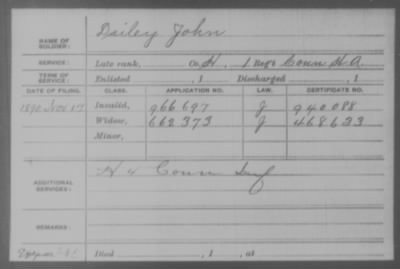 NAME OF SOLDIER: Dailey John
SERVICE: Late rank, Co. H, 1 Reg't Conn H. A.
TERM OF SERVICE: Enlisted , 1 Discharged , 1
DATE OF FILING. CLASS. APPLICATION NO. LAW. CERTIFICATE NO.
1890 Nov 17 Invalid, 966697 J 940088
Widow, 662373 J 468633
Minor,
ADDITIONAL SERVICES: H 4 Conn Inf
REMARKS:
Died , 1 , at